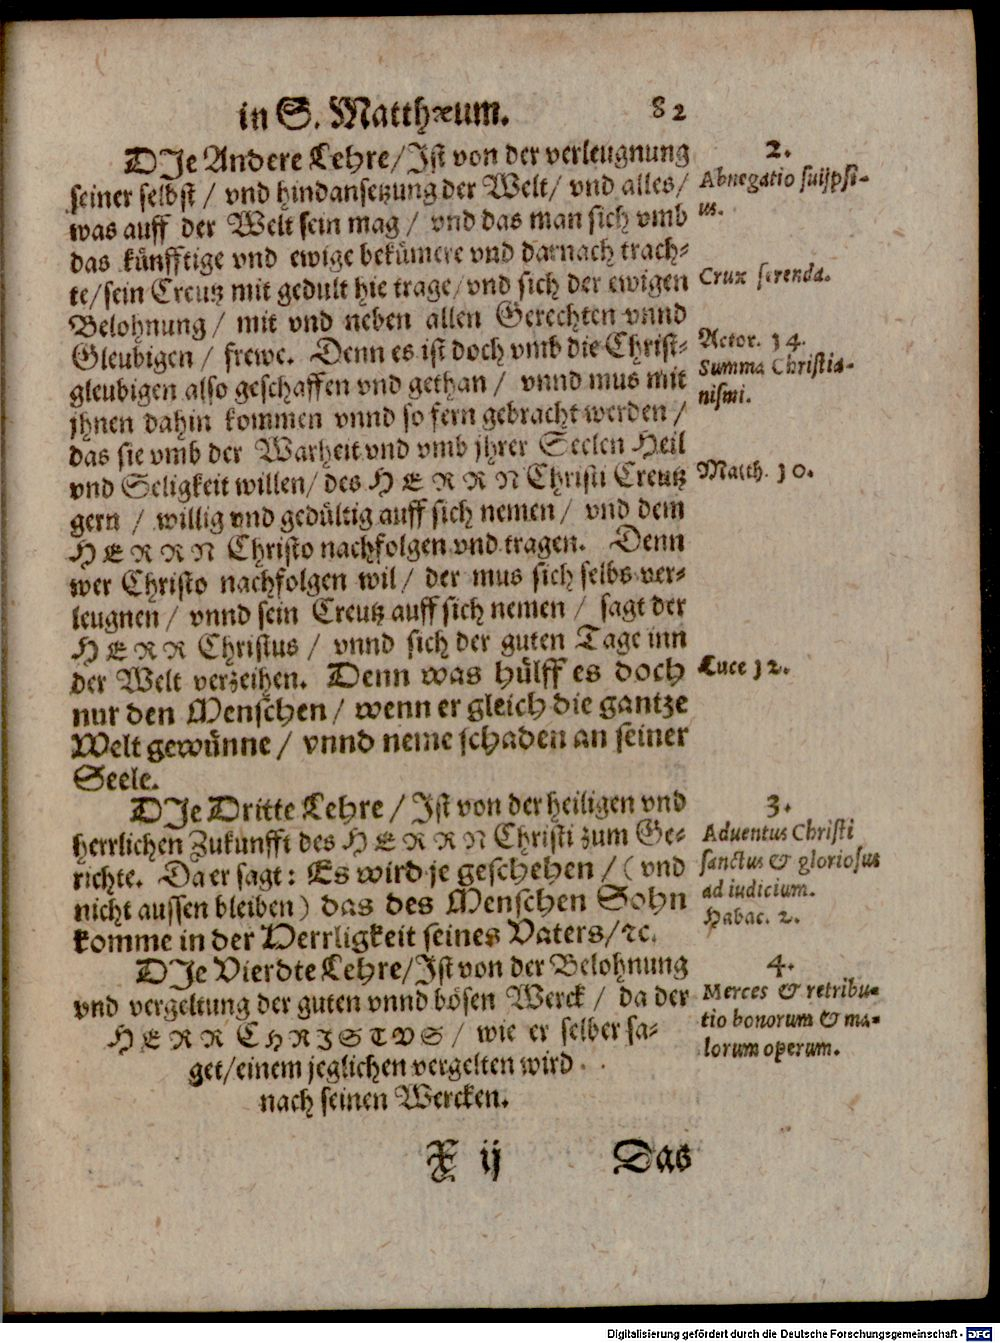 in S. Matthæum. 82
DJe Andere Lehre/Jst von der verleugnung
seiner selbst / vnd hindansetzung der Welt/ vnd alles/
was auff der Welt sein mag / vnd das man sich vmb
das künfftige vnd ewige bekümere vnd darnach trach-
te/sein Creutz mit gedult hie trage/vnd sich der ewigen
Belohnung / mit vnd neben allen Gerechten vnnd
Gleubigen / frewe. Denn es ist doch vmb die Christ-
gleubigen also geschaffen vnd gethan / vnnd mus mit
jhnen dahin kommen vnnd so fern gebracht werden /
das sie vmb der Warheit vnd vmb jhrer Seelen Heil
vnd Seligkeit willen/ des HERRN Christi Creutz
gern / willig vnd gedültig auff sich nemen / vnd dem
HERRN Christo nachfolgen vnd tragen. Denn
wer Christo nachfolgen wil / der mus sich selbs ver-
leugnen / vnnd sein Creutz auff sich nemen / sagt der
HERR Christus / vnnd sich der guten Tage inn
der Welt verzeihen. Denn was hülff es doch
nur den Menschen / wenn er gleich die gantze
Welt gewünne / vnnd neme schaden an seiner
Seele.
DJe Dritte Lehre / Jst von der heiligen vnd
herrlichen Zukunfft des HERRN Christi zum Ge-
richte. Da er sagt: Es wird je geschehen / ( vnd
nicht aussen bleiben ) das des Menschen Sohn
komme in der Herrligkeit seines Vaters/ꝛc.
DJe Vierdte Lehre/Jst von der Belohnung
vnd vergeltung der guten vnnd bösen Werck / da der
HERR CHRISTVS / wie er selber sa-
get/einem jeglichen vergelten wird
nach seinen Wercken.
2.
Abnegatio suijpsi-
us.
Crux ferenda.
Actor. 14.
Summa Christia-
nismi.
Matth. 10.
Luce 12.
3.
Aduentus Christi
sanctus & gloriosus
ad iudicium.
Habac. 2.
4.
Merces & retribu-
tio bonorum & ma-
lorum operum.
X ij Das
Digitalisierung gefördert durch die Deutsche Forschungsgemeinschaft - DFG